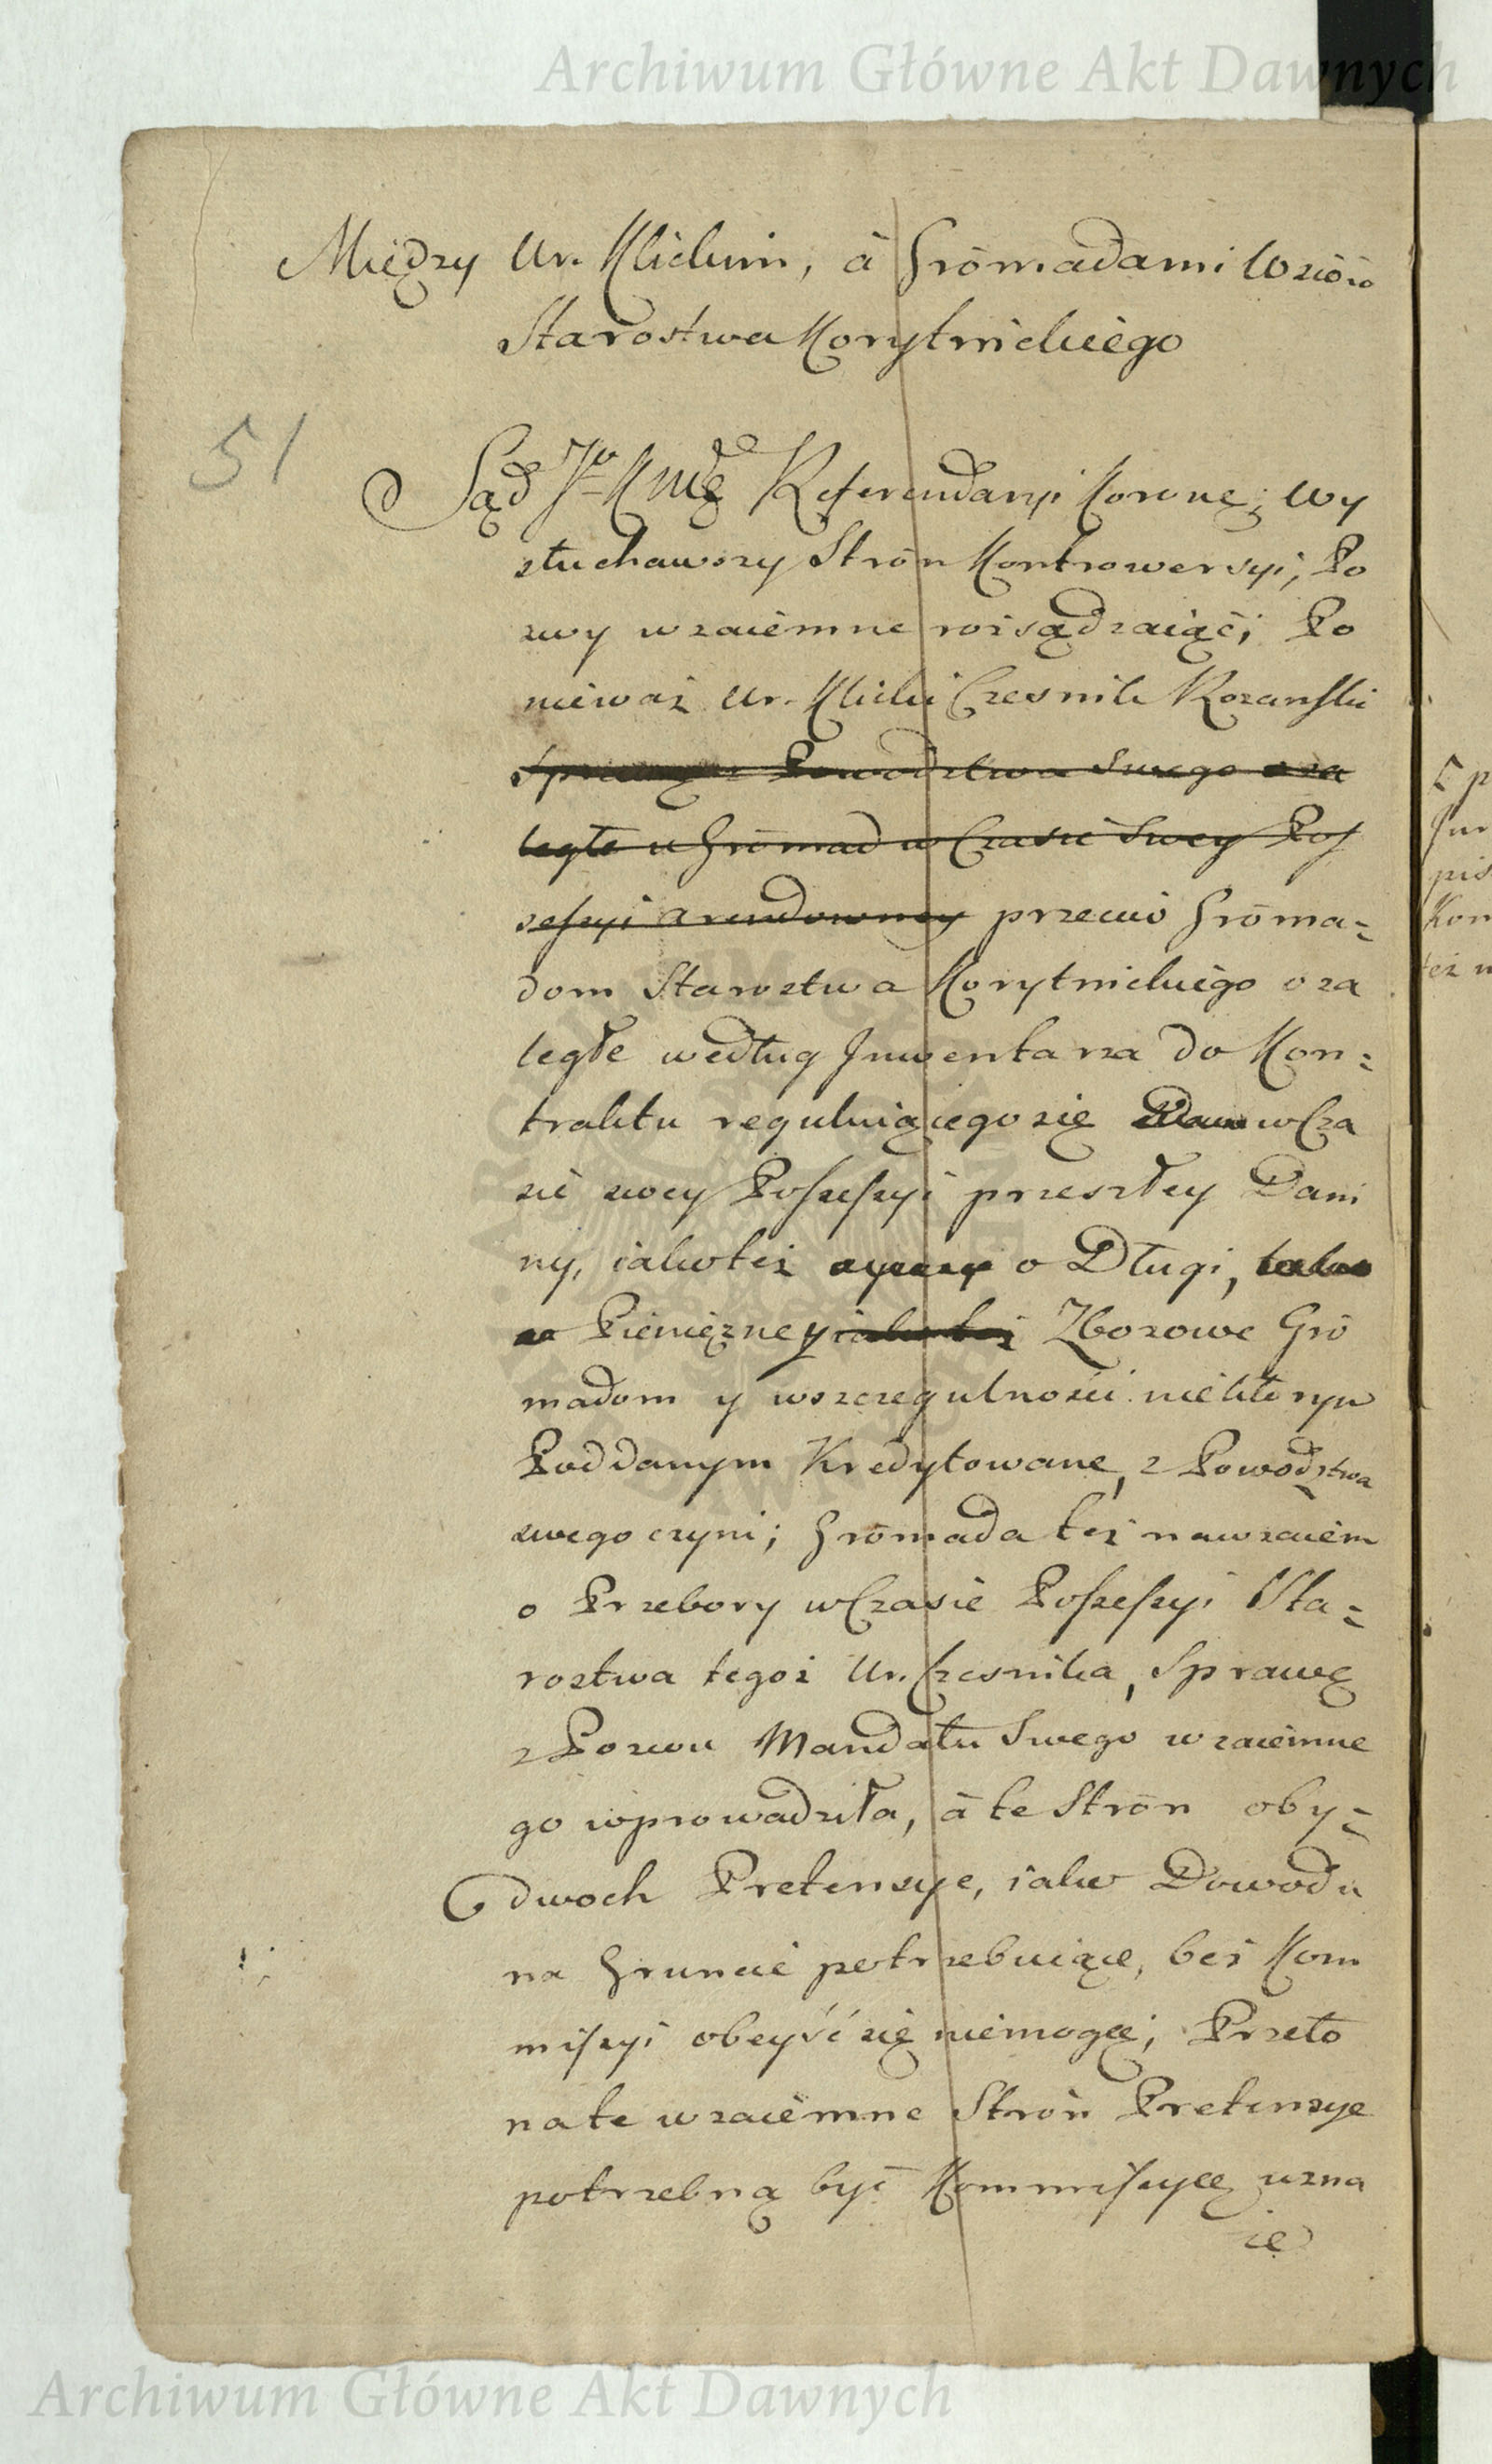 Archiwum Główne Akt Dawnych
Między Ur. Klickim, à Gromadami Wsiów
Starostwa Korytnickiego
51
Sąd JoKMci Referendaryi Koronnei, wy
słuchawszy Strón Kontrowersyi, Po
zwy wzaiemne rozsądzaiąć; Po
nieważ Ur. Klicki Czesnik Rozanski
Sprawę z Powodztwa Swego o za
ległe u Gromad w Czasie Swey Pos
sessyi arendowney przeciw Groma=
dom Starostwa Korytnickiego o za
ległe według Inwentarza do Kon=
traktu reguluiącego się w Cza
sie swey Possessyi przeszłey Dani
ny, iakoteż o Długi, tako
Pieniężne y iako też Zbozowe Gro
madom y wszczegulności niektorym
Poddanym Kredytowane, z Powodztwa
swego czyni; Gromada też nawzaiem
o Przebory w Czasie Possessyi Sta=
rostwa tegoż Ur. Czesnika, Sprawę
z Pozwu Mandatu Swego wzaiemne
go wprowadziła, à te Strón oby=
dwoch Pretensye, iako Dowodu
na Gruncie potrzebuiące, bez Kom
missyi obeyść się niemogą; Przeto
na te wzaiemne Strón Pretensye
potrzebną być Kommissyę uzna
ie
Archiwum Główne Akt Dawnych